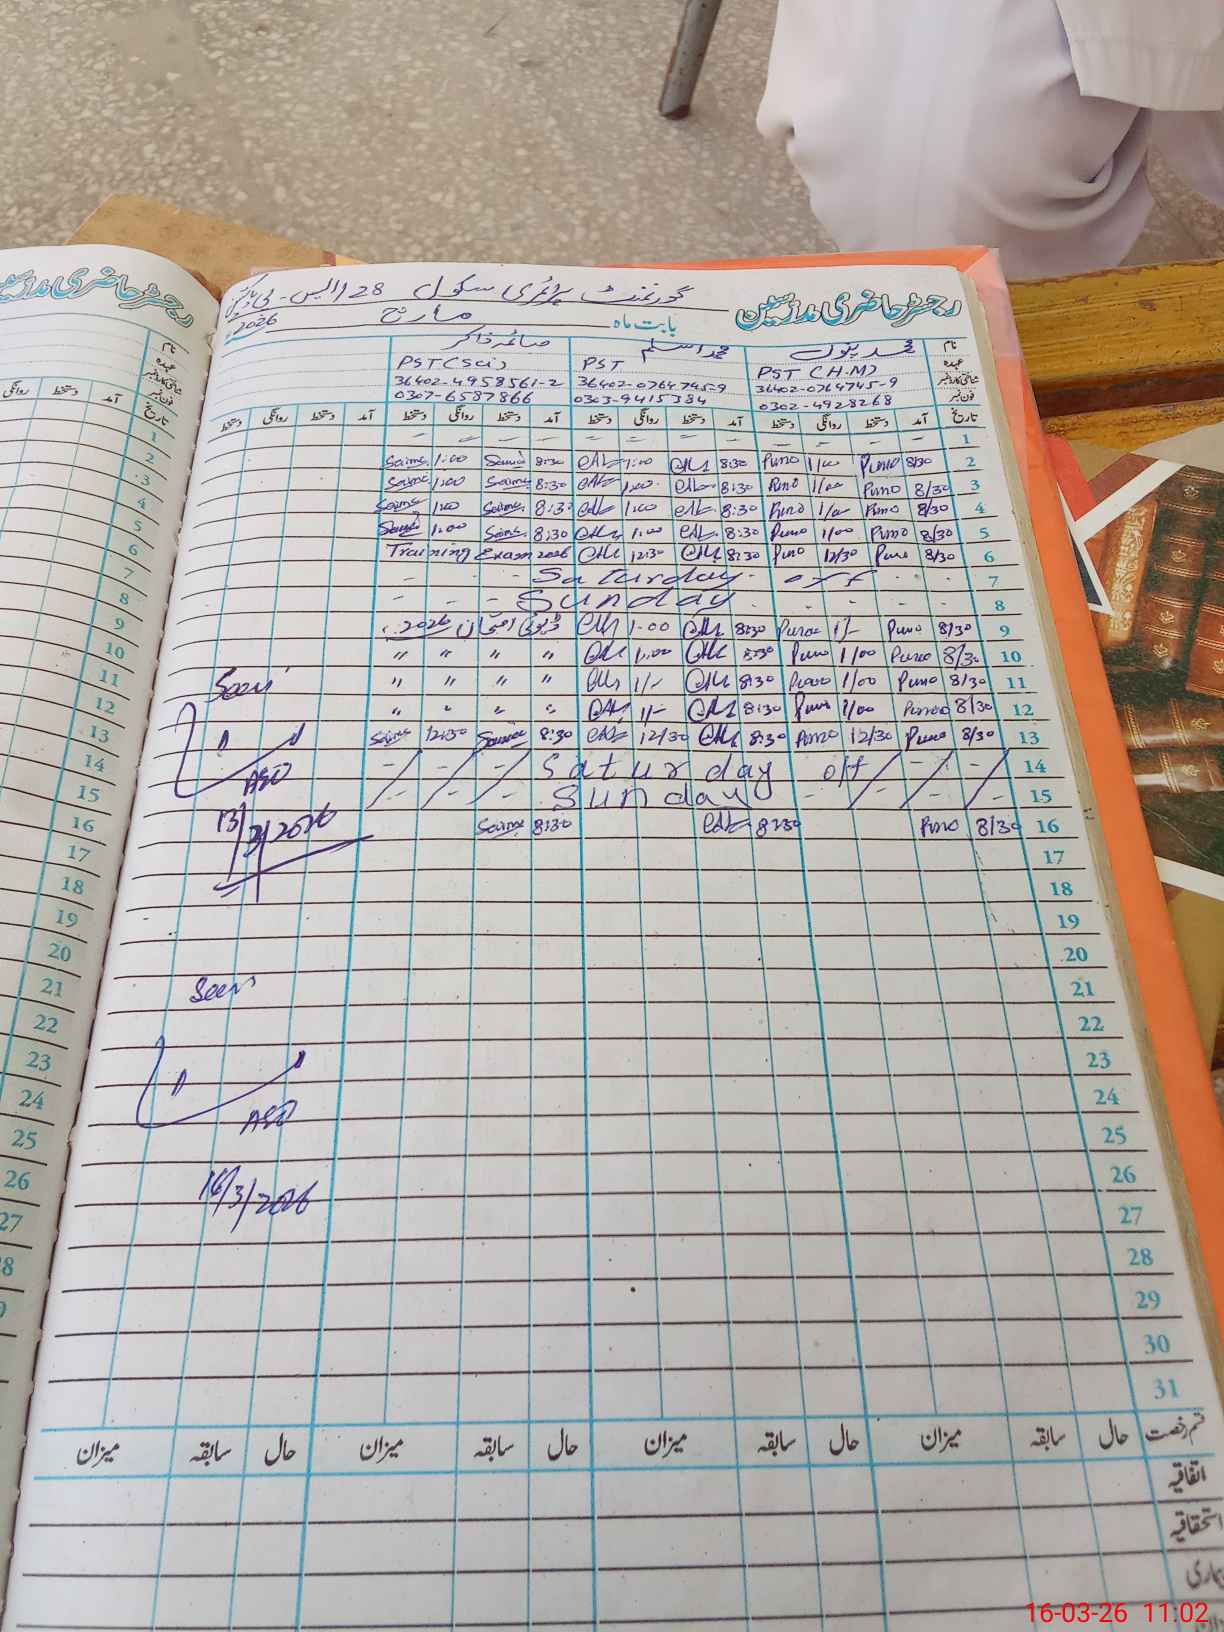 رجسٹر حاضری مدرسین گورنمنٹ پرائمری سکول 28 / ایس۔ بی
بابت ماہ مارچ 2026
نام محمد یونس محمد اسلم صائمہ ذاکر
عہدہ PST (H.M) PST PST (Sci)
شناختی کارڈ نمبر 36402-0764745-9 36402-0764745-9 36402-4958561-2
فون نمبر 0302-4928268 0303-9415384 0307-6587866
تاریخ آمد دستخط روانگی دستخط آمد دستخط روانگی دستخط آمد دستخط روانگی دستخط آمد دستخط روانگی دستخط
1 - - - - - - - - - - - -
2 8/30 1/00 8:30 1:00 8:30 Saima 1:00 Saima
3 8/30 1/00 8:30 1:00 8:30 Saima 1:00 Saima
4 8/30 1/00 8:30 1:00 8:30 Saima 1:00 Saima
5 8/30 1/00 8:30 1:00 8:30 Saima 1:00 Saima
6 8/30 12/30 8:30 12:30 Training Exam 2026
7 Saturday off
8 Sunday
9 8/30 1/- 8:30 1:00 ڈیوٹی امتحان 2026
10 8/30 1/00 8:30 1:00 " " " "
11 8/30 1/00 8:30 1/- " " " "
12 8/30 1/00 8:30 1/- " " " "
13 8/30 12/30 8:30 12/30 8:30 Saima 12:30 Saima
14 Saturday off
15 Sunday
16 8/30 8:30 8:30 Saima
17
18
19
20
21
22
23
24
25
26
27
28
29
30
31
Seen
AEO
13/3/2026
Seen
AEO
16/3/2026
قسم رخصت حال سابقہ میزان حال سابقہ میزان حال سابقہ میزان حال سابقہ میزان
اتفاقیہ
استحقاقیہ
بیماری
رجسٹر حاضری مدرسین
نام
عہدہ
شناختی کارڈ نمبر
فون نمبر
تاریخ آمد دستخط روانگی
1
2
3
4
5
6
7
8
9
10
11
12
13
14
15
16
17
18
19
20
21
22
23
24
25
26
27
8
16-03-26 11:02